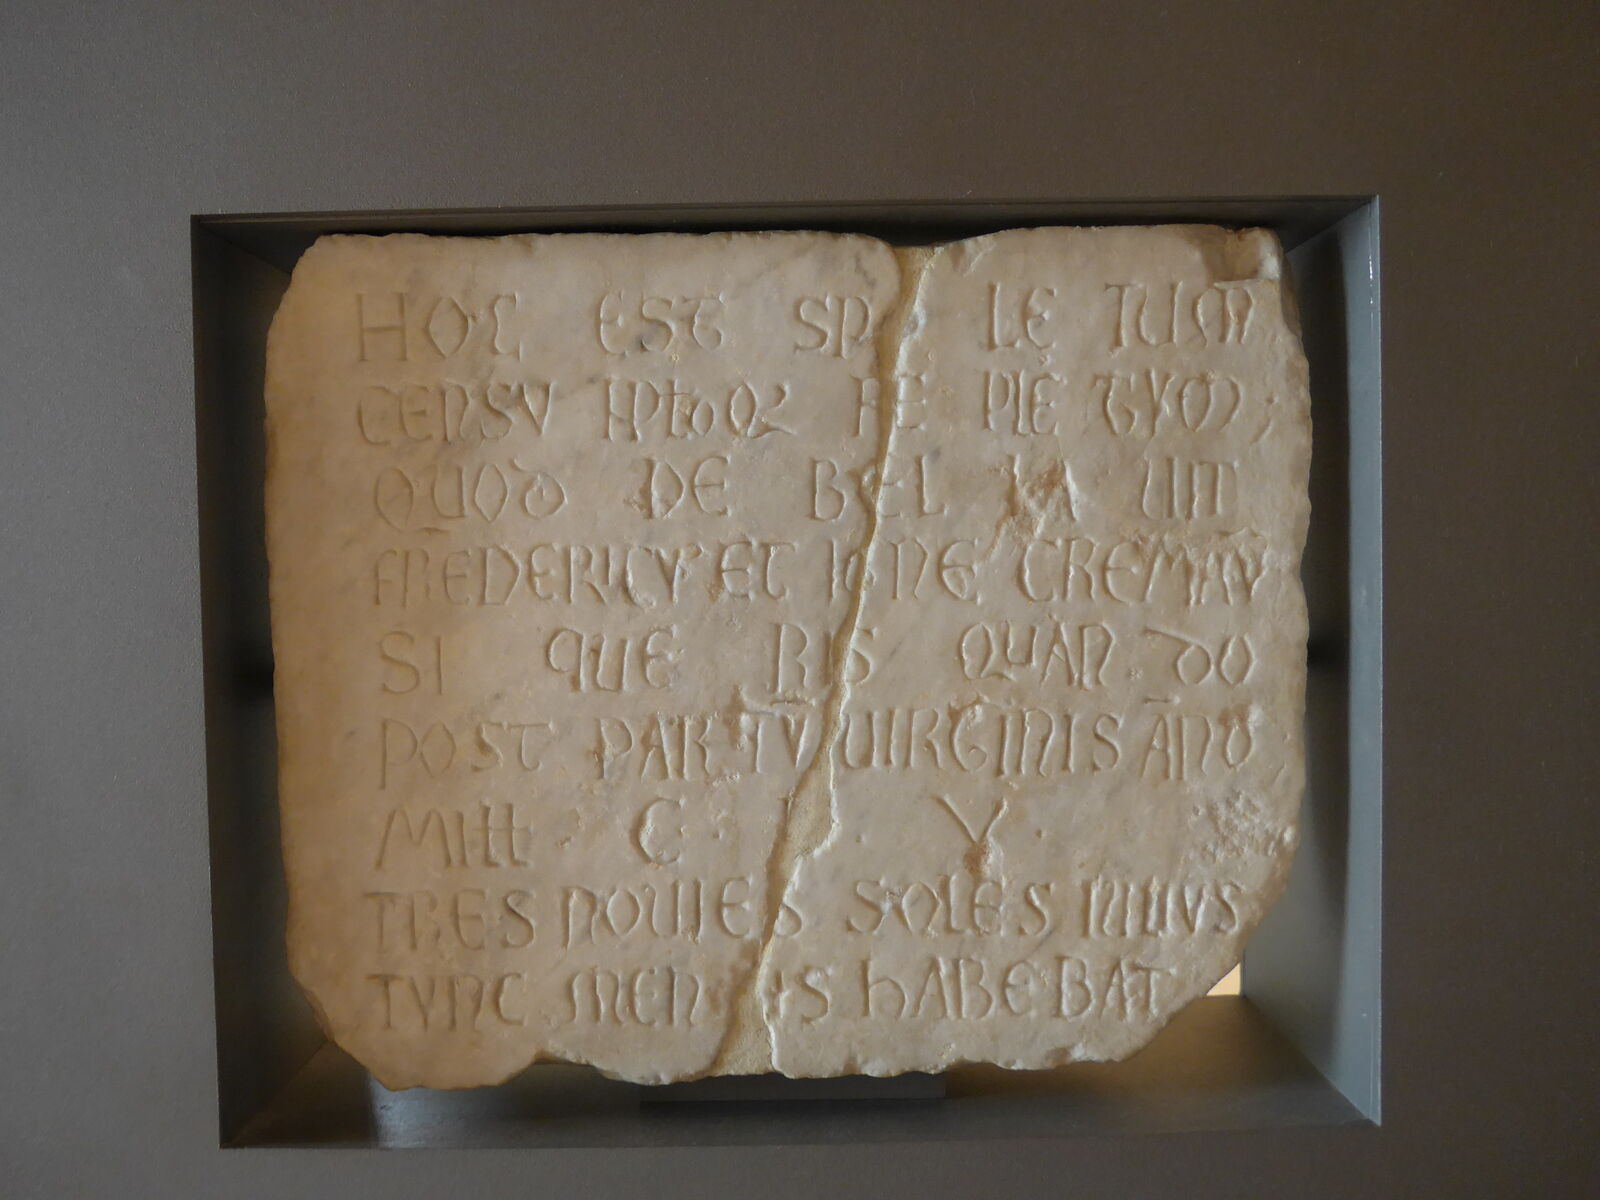 HOC EST SP LE TUM
CENSV PPŁOQ3 RE PLE TVM;
QUOD DE BEL LA UIT
FREDERICV' ET IGNE CREMAV̄
SI QUE RIS QUAN DO
POST PAR TV̄ VIRGINIS ĀNO
MIŁŁ C L V
TRES NOUIES SOLES IULIVS
TVNC MEN IS HABEBAT